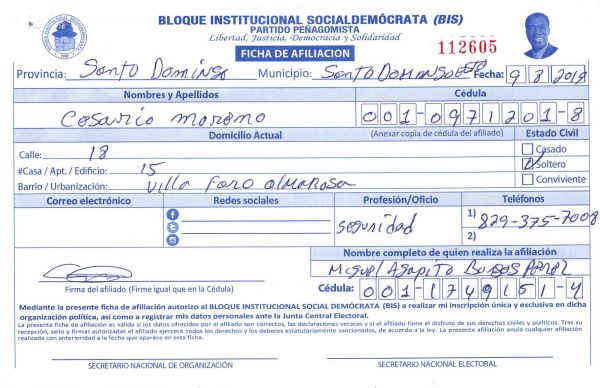 BLOQUE INSTITUCIONAL SOCIALDEMÓCRATA (BIS)
PARTIDO PEÑAGOMISTA
Libertad, Justicia, Democracia y Solidaridad
FICHA DE AFILIACION
112605
Provincia: Santo Domingo Municipio: Santo Domingo Este Fecha: 9 8 2018
Nombres y Apellidos Cédula
Cesario moreno 001-0971201-8
Domicilio Actual (Anexar copia de cédula del afiliado) Estado Civil
Calle: 18 Casado
#Casa / Apt. / Edificio: 15 Soltero
Barrio / Urbanización: Villa Faro almarosa Conviviente
Correo electrónico Redes sociales Profesión/Oficio Teléfonos
seguridad 1) 829-375-7008
2)
Nombre completo de quien realiza la afiliación
Miguel Agapito Burgos Perez
Firma del afiliado (Firme igual que en la Cédula) Cédula: 001-1749151-4
Mediante la presente ficha de afiliación autorizo al BLOQUE INSTITUCIONAL SOCIAL DEMÓCRATA (BIS) a realizar mi inscripción única y exclusiva en dicha
organización política, así como a registrar mis datos personales ante la Junta Central Electoral.
La presente ficha de afiliación es válida si los datos ofrecidos por el afiliado son correctos, las declaraciones veraces y si el afiliado tiene el disfrute de sus derechos civiles y políticos. Tras su
recepción, sello y firmas autorizadas el afiliado ejercerá todos los derechos y los deberes estatutariamente sancionados, de acuerdo a la ley. La presente afiliación anula cualquier afiliación
realizada con anterioridad a la fecha que aparece en esta ficha.
SECRETARIO NACIONAL DE ORGANIZACIÓN SECRETARIO NACIONAL ELECTORAL